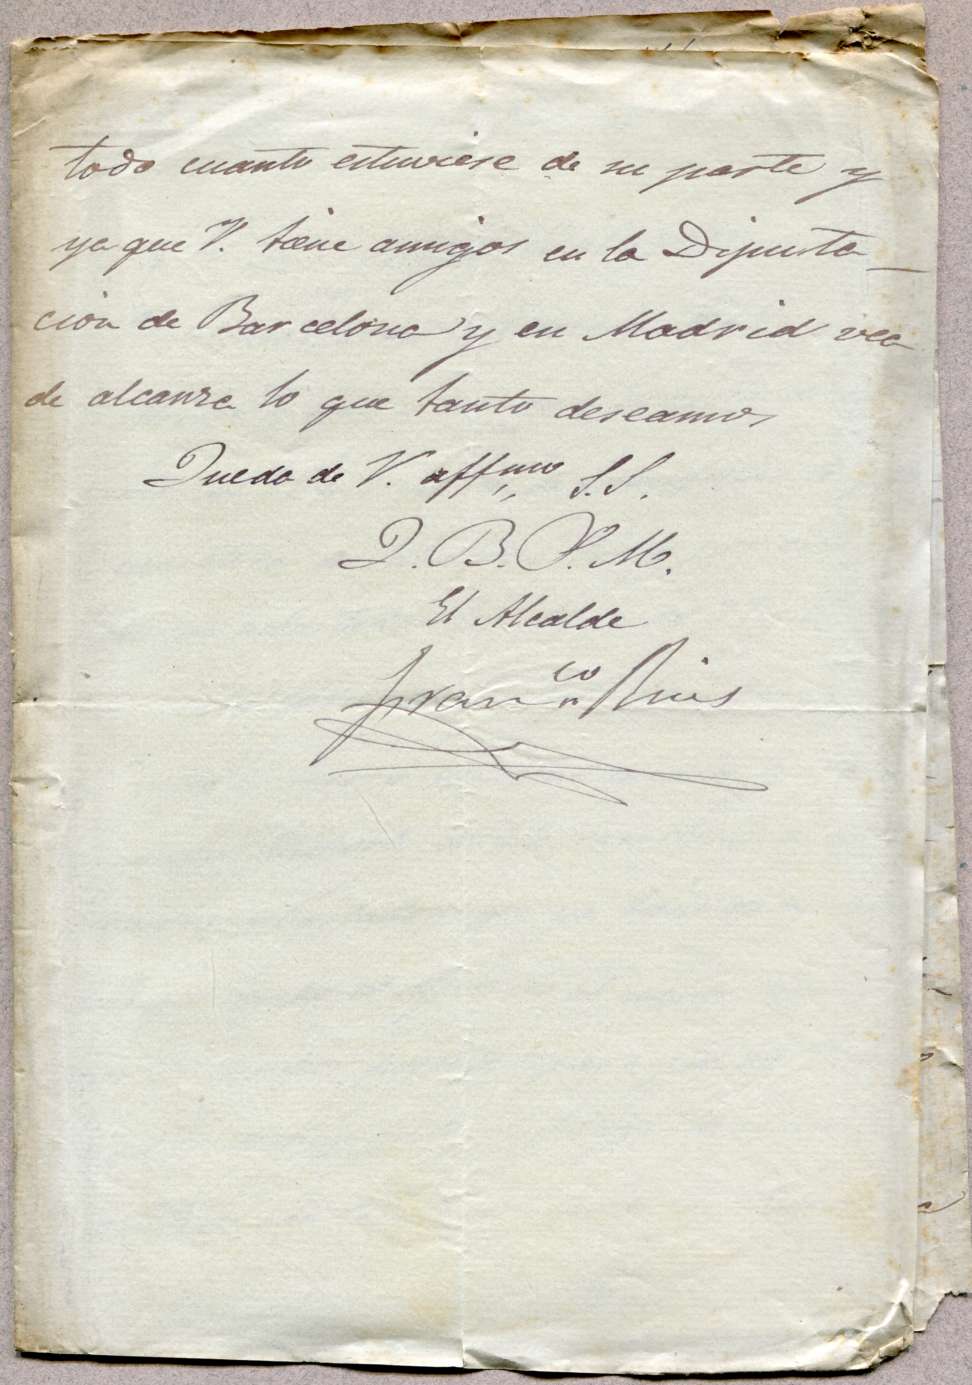 todo cuanto estuviese de su parte y
ya que V. tiene amigos en la Diputa-
cion de Barcelona y en Madrid vea
de alcanza lo que tanto deseamos
Queda de V. affmo S.S.
Q. B. S. M.
El Alcalde
Franco Rius